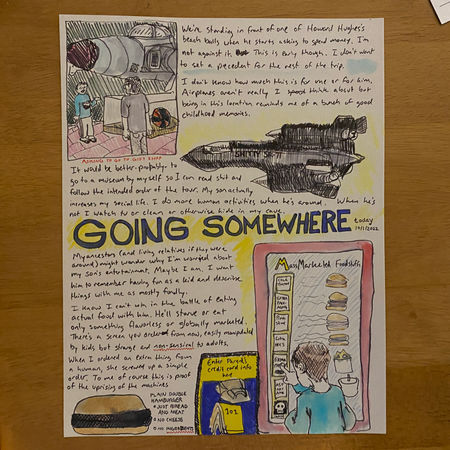 We're standing in front of one of Howard Hughes's
beach balls when he starts asking to spend money. I'm
not against it. This is early though. I don't want
to set a precedent for the rest of the trip.
I don't know how much this is for me or for him.
Airplanes aren't really I think about but
being in this location reminds me of a bunch of good
childhood memories.
ASKING TO GO TO GIFT SHOP
It would be better, probably, to
go to a museum by myself so I can read shit and
follow the intended order of the tour. My son actually
increases my social life. I do more human activities when he's around. When he's
not I watch tv or clean or otherwise hide in my cave.
GOING SOMEWHERE
today
10/11/2022
My ancestors (and living relatives if they were
around) might wonder why I'm worried about
my son's entertainment. Maybe I am. I want
him to remember having fun as a kid and describe
things with me as mostly fondly.
I know I can't win in the battle of eating
actual food with him. He'll starve or eat
only something flavorless or globally marketed.
There's a screen you order from now, easily manipulated
by kids but strange and non-sensical to adults.
When I ordered an extra thing from
a human, she screwed up a simple
order. To me of course this is proof
of the uprising of the machines
PLAIN DOUBLE
HAMBURGER
JUST BREAD
AND MEAT
NO CHEESE
NO INGREDIENTS
Enter Parent's
credit card info
here
101
Mass Marketed Foodstuffs